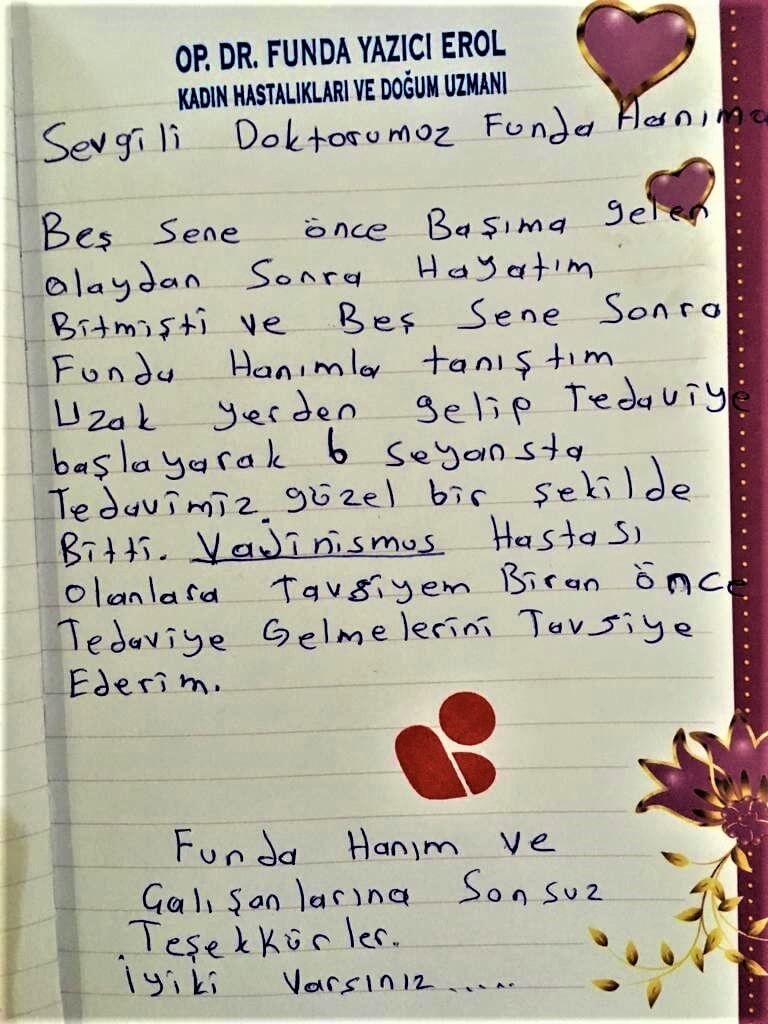 OP. DR. FUNDA YAZICI EROL
KADIN HASTALIKLARI VE DOĞUM UZMANI
Sevgili Doktorumuz Funda Hanıma
Beş Sene önce Başıma gelen
olaydan Sonra Hayatım
Bitmişti ve Beş Sene Sonra
Funda Hanımla tanıştım
Uzak yerden gelip Tedaviye
başlayarak 6 seyansta
Tedavimiz güzel bir şekilde
Bitti. Vajinismus Hastası
olanlara Tavsiyem Biran önce
Tedaviye Gelmelerini Tavsiye
Ederim.
Funda Hanım ve
Çalışanlarına Sonsuz
Teşekkürler.
İyiki Varsınız.....